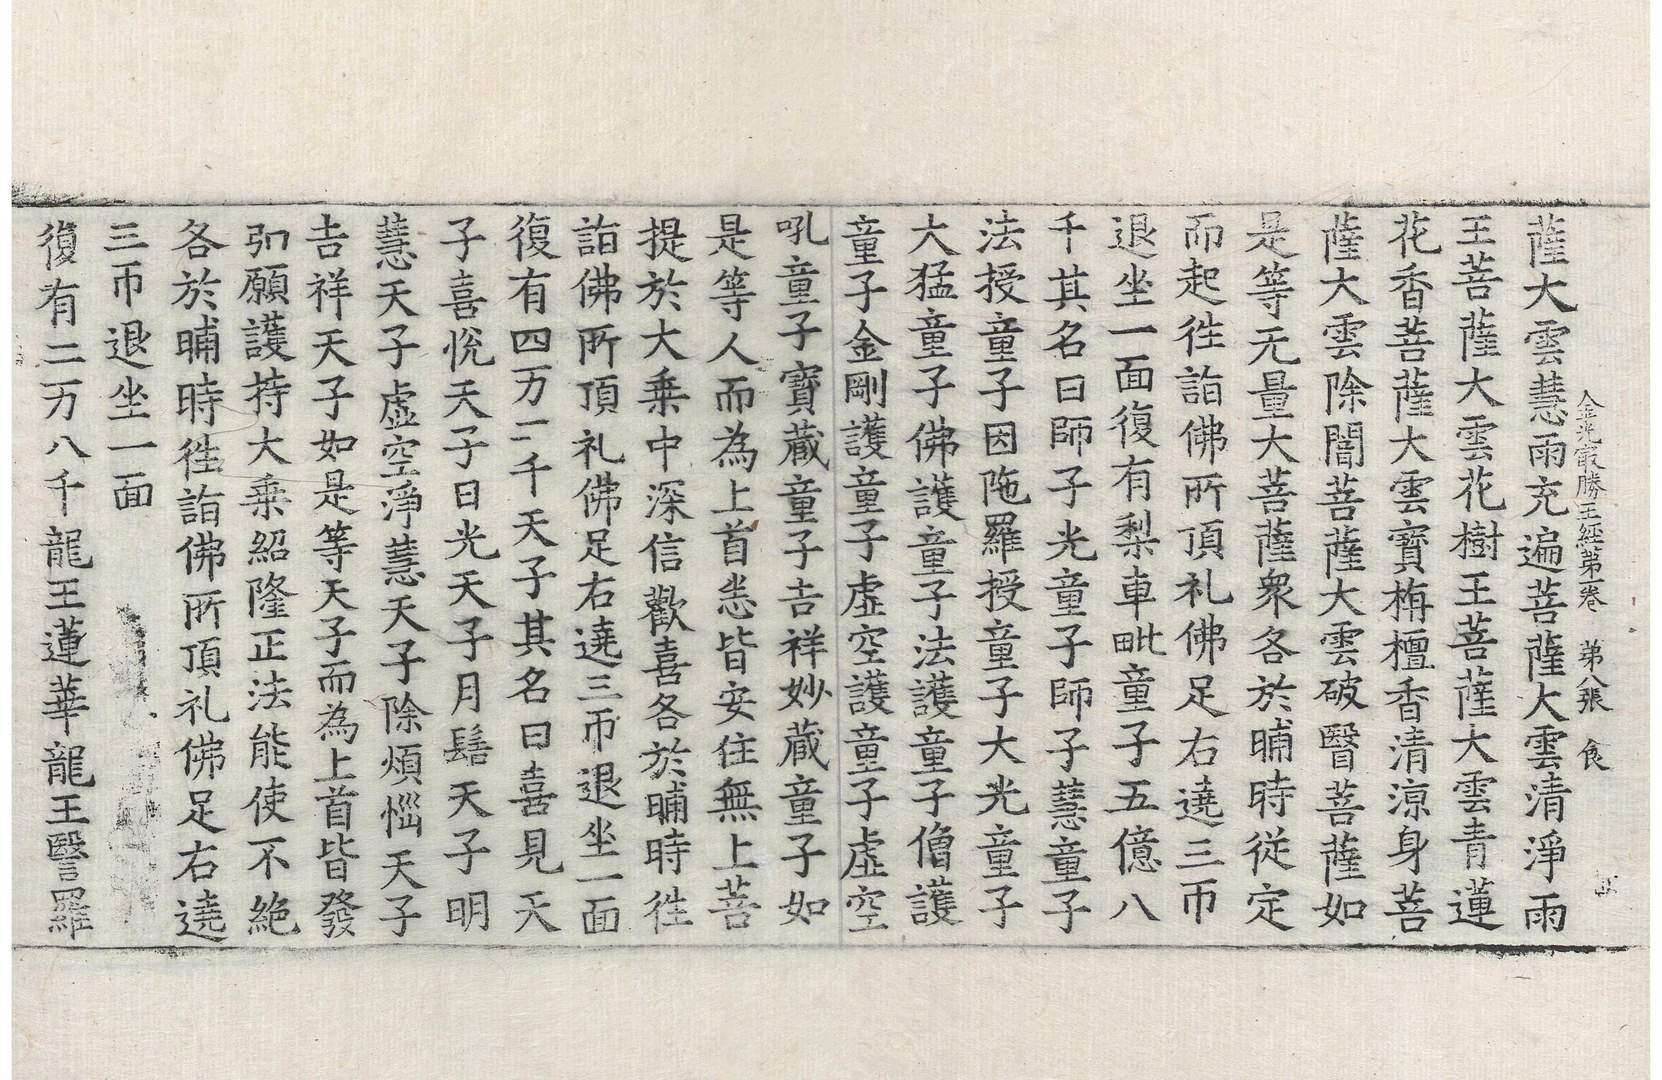 金光冣勝王經第一卷　第八張　食
薩大雲慧雨充遍菩薩大雲清淨雨
王菩薩大雲花樹王菩薩大雲青蓮
花香菩薩大雲寶栴檀香清涼身菩
薩大雲除闇菩薩大雲破瞖菩薩如
是等无量大菩薩衆各於晡時從定
而起徃詣佛所頂礼佛足右遶三帀
退坐一面復有梨車毗童子五億八
千其名曰師子光童子師子慧童子
法授童子因陁羅授童子大光童子
大猛童子佛護童子法護童子僧護
童子金剛護童子虛空護童子虛空
吼童子寶藏童子吉祥妙藏童子如
是等人而為上首悉皆安住無上菩
提於大乗中深信歡喜各於晡時徃
詣佛所頂礼佛足右遶三帀退坐一面
復有四万二千天子其名曰喜見天
子喜悅天子日光天子月髻天子明
慧天子虛空淨慧天子除煩惱天子
吉祥天子如是等天子而為上首皆發
弘願護持大乗紹隆正法能使不絶
各於晡時徃詣佛所頂礼佛足右遶
三帀退坐一面
復有二万八千龍王蓮華龍王瞖羅